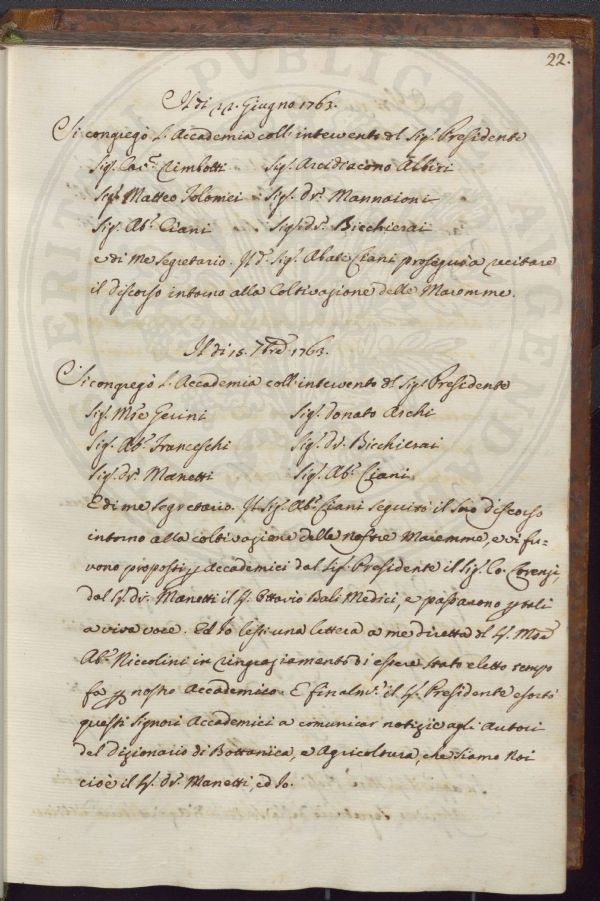 22.
Il dì 22. Giugno 1763.
Si congregò l'Accademia coll'intervento del Sig.r Presidente
Sig.r Cav.r Cimbotti Sig.r Arcidiacono Albizi
Sig.r Matteo Tolomei Sig.r dr. Mannaioni
Sig.r Ab.e Ciani Sig.r dr. Bicchierai
e di me segretario. Il d.o Sig.r Abate Ciani proseguì a recitare
il discorso intorno alla Coltivazione delle Maremme.
Il dì 15. 7bre 1763.
Si congregò l'Accademia coll'intervento del Sig.r Presidente
Sig.r M.se Gerini Sig.r Donato Archi
Sig.r Ab.e Franceschi Sig.r dr. Bicchierai
Sig.r dr. Manetti Sig.r Ab.e Ciani
E di me segretario. Il Sig.r Ab.e Ciani seguitò il suo discorso
intorno alla coltivazione delle nostre Maremme, e vi fu-
rono proposti p Accademici dal Sig.r Presidente il Sig.r Co. Lorenzi,
dal S.r dr. Manetti il S.r Ottavio Balì Medici, e passarono p tali
a viva voce. Ed Io lessi una lettera a me diretta del S.r M.se
Ab.e Niccolini in ringraziamento di essere stato eletto tempo
fa p nostro Accademico. E finalm.e il S.r Presidente esortò
questi Signori Accademici a comunicar notizie agli Autori
del Dizionario di Bottanica, e Agricoltura, che siamo Noi
cioè il S.r dr. Manetti, ed Io.